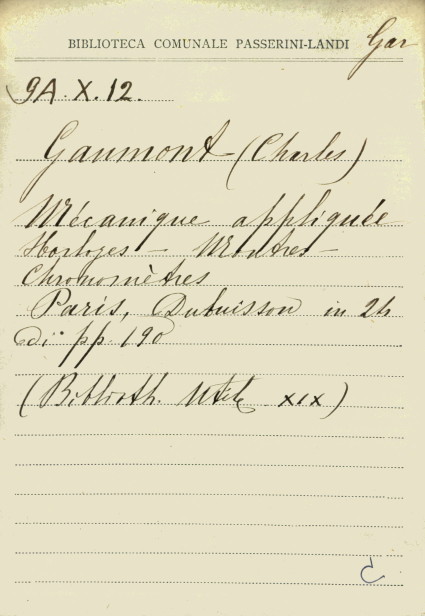 BIBLIOTECA COMUNALE PASSERINI-LANDI Gar
9A. X. 12.
Gaumont (Charles)
Mécanique appliquée
Horloges - Montres -
Chronomètres
Paris, Dubuisson in 24
di pp 190
(Biblioth. Utile XIX)
C